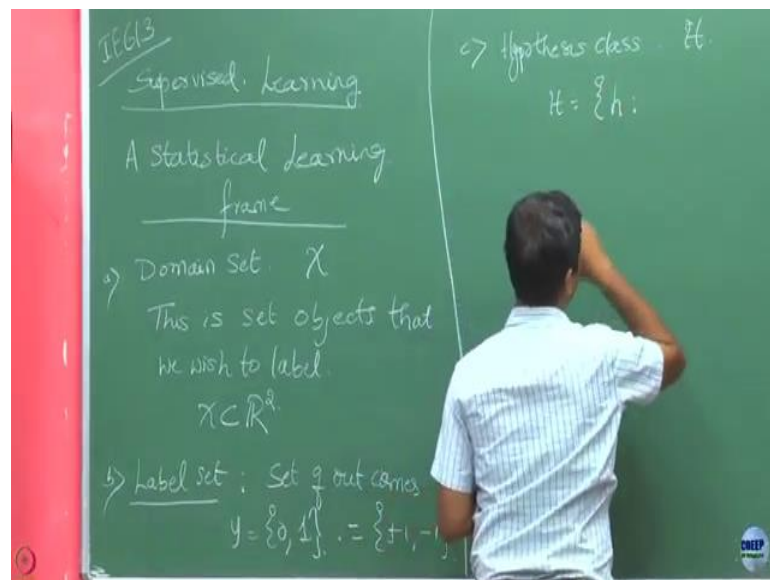 IE613
Supervised. Learning
A Statistical Learning
frame
a) Domain Set. X
This is set objects that
we wish to label.
X ⊂ ℝ²
b) Label set : Set of out comes
Y = {0, 1}. = {+1, -1}
c) Hypothesis class. H.
H = {h :
CDEEP